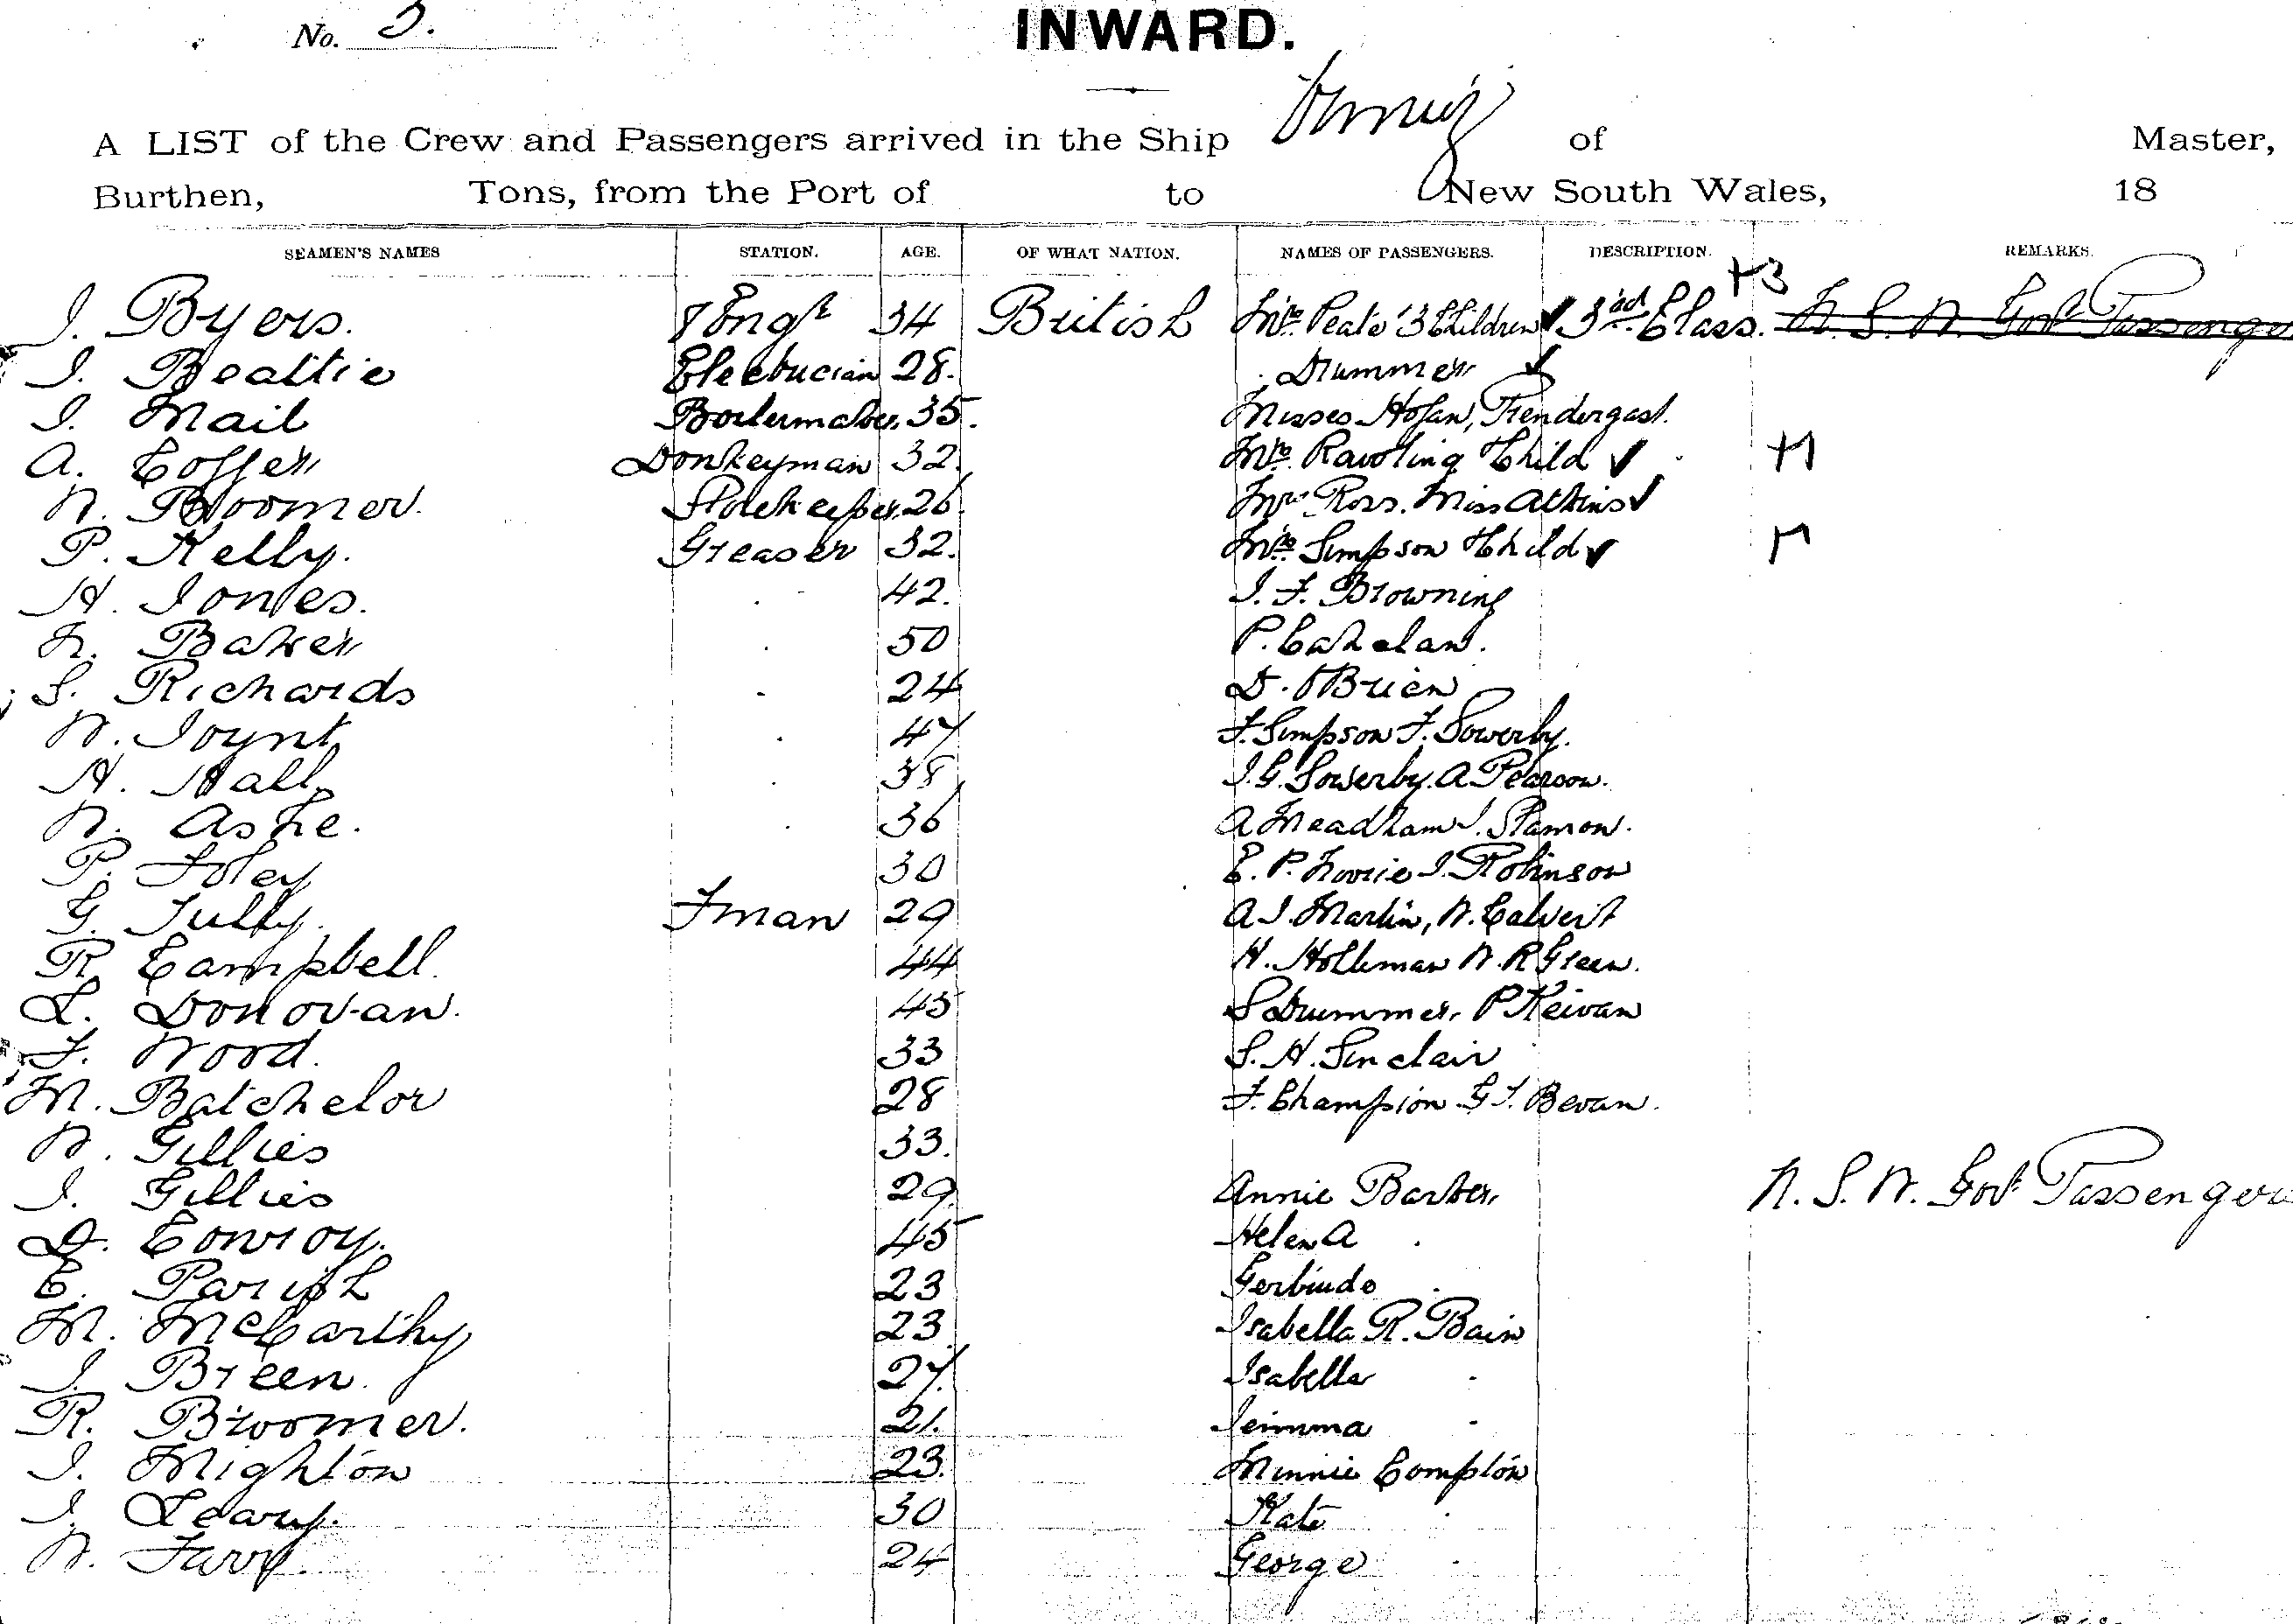 No. 3.
INWARD.
A LIST of the Crew and Passengers arrived in the Ship of Master,
Burthen, Tons, from the Port of to New South Wales, 18
SEAMEN'S NAMES STATION. AGE. OF WHAT NATION. NAMES OF PASSENGERS. DESCRIPTION. REMARKS.
J. Byers. 34 British Mrs. Peate 3 Children ✓ 3rd Class. +3 N. S. W. Govt Passenge
J. Beattie Electrician 28. Drummer ✓
J. Mail Boilermaker 35. Misses Hogan, Prendergast.
A. Coffer Donkeyman 32. Mrs. Rawling Child ✓ +1
W. Broomer. Storekeeper 26. Mrs Ross. Miss Atkins ✓
P. Kelly. Greaser 32. Mrs. Simpson Child ✓
H. Jones. 42. J. F. Browning
Baker 50 P. Cahelan.
S. Richards 24 D. O'Brien
W. Joynt 47 F. Simpson F. Sowerby.
H. Hall 38 J. G. Sowerby. A. Pearson.
W. Ashe. 36 A Meadham J.
P. Foley 30 E. P. J. Robinson
G. Tully. Fman 29 A. J. Martin, W. Calvert
R. Campbell. 44 H. Holleman W. R Green.
L. Donovan. 45 S Drummer, P Keivan
F. Wood. 33 S. H. Sinclair
M. Batchelor 28 F. Champion G J. Bevan.
W. Gillies 33.
J. Gillies 29. Annie Barber, N. S. W. Govt Passengers
D. Conroy. 45 Helen A
E. Parish 23 Gertrude
M. McCarthy 23 Isabella R. Bain
J. Breen. 27. Isabella
R. Broomer. 21. Jemima
J. Mighton 23. Minnie Compton
J. Leary. 30 Kate
W. Farr. 24 George